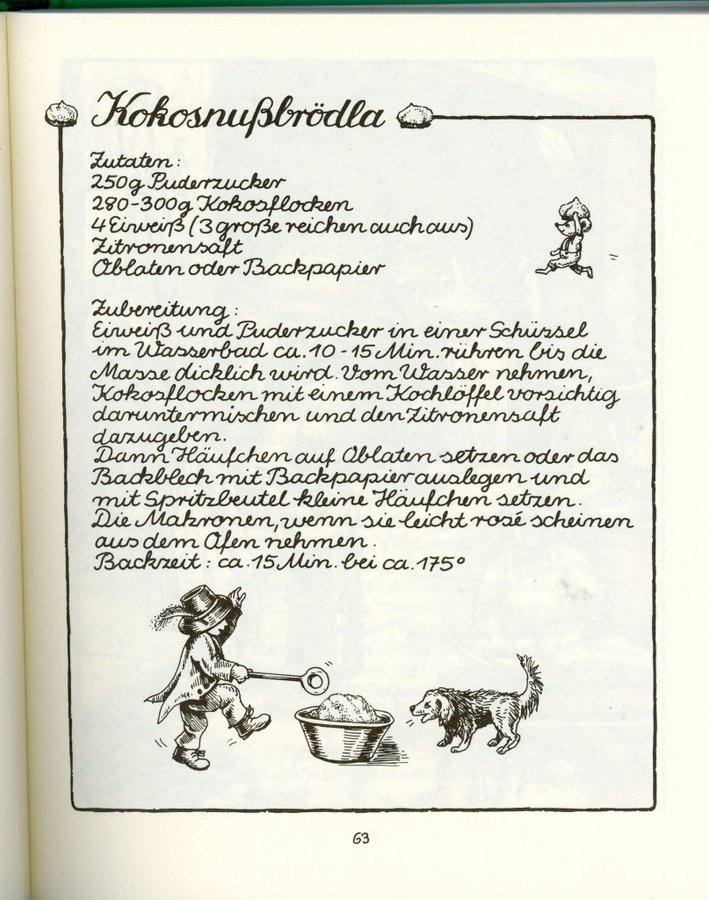 Kokosnußbrödla
Zutaten:
250g Puderzucker
280-300g Kokosflocken
4 Eiweiß (3 große reichen auch aus)
Zitronensaft
Oblaten oder Backpapier
Zubereitung:
Eiweiß und Puderzucker in einer Schüssel
im Wasserbad ca. 10-15 Min. rühren bis die
Masse dicklich wird. Vom Wasser nehmen,
Kokosflocken mit einem Kochlöffel vorsichtig
daruntermischen und den Zitronensaft
dazugeben.
Dann Häufchen auf Oblaten setzen oder das
Backblech mit Backpapier auslegen und
mit Spritzbeutel kleine Häufchen setzen.
Die Makronen, wenn sie leicht rosé scheinen
aus dem Ofen nehmen.
Backzeit: ca. 15 Min. bei ca. 175°
63